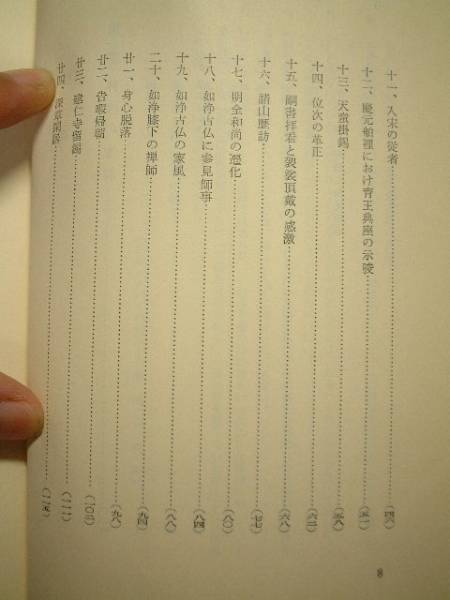 十一、入宋の従者……(四六)
十二、慶元舶裡における育王典座の示唆……(五一)
十三、天童掛錫……(五八)
十四、位次の革正……(六二)
十五、嗣書拝看と袈裟頂戴の感激……(六八)
十六、諸山歴訪……(七七)
十七、明全和尚の遷化……(八〇)
十八、如浄古仏に参見師事……(八四)
十九、如浄古仏の家風……(八八)
二十、如浄膝下の禅師……(九四)
廿一、身心脱落……(九八)
廿二、告暇帰朝……(一〇三)
廿三、建仁寺留錫……(一一一)
廿四、深草閑居……(一一五)
8